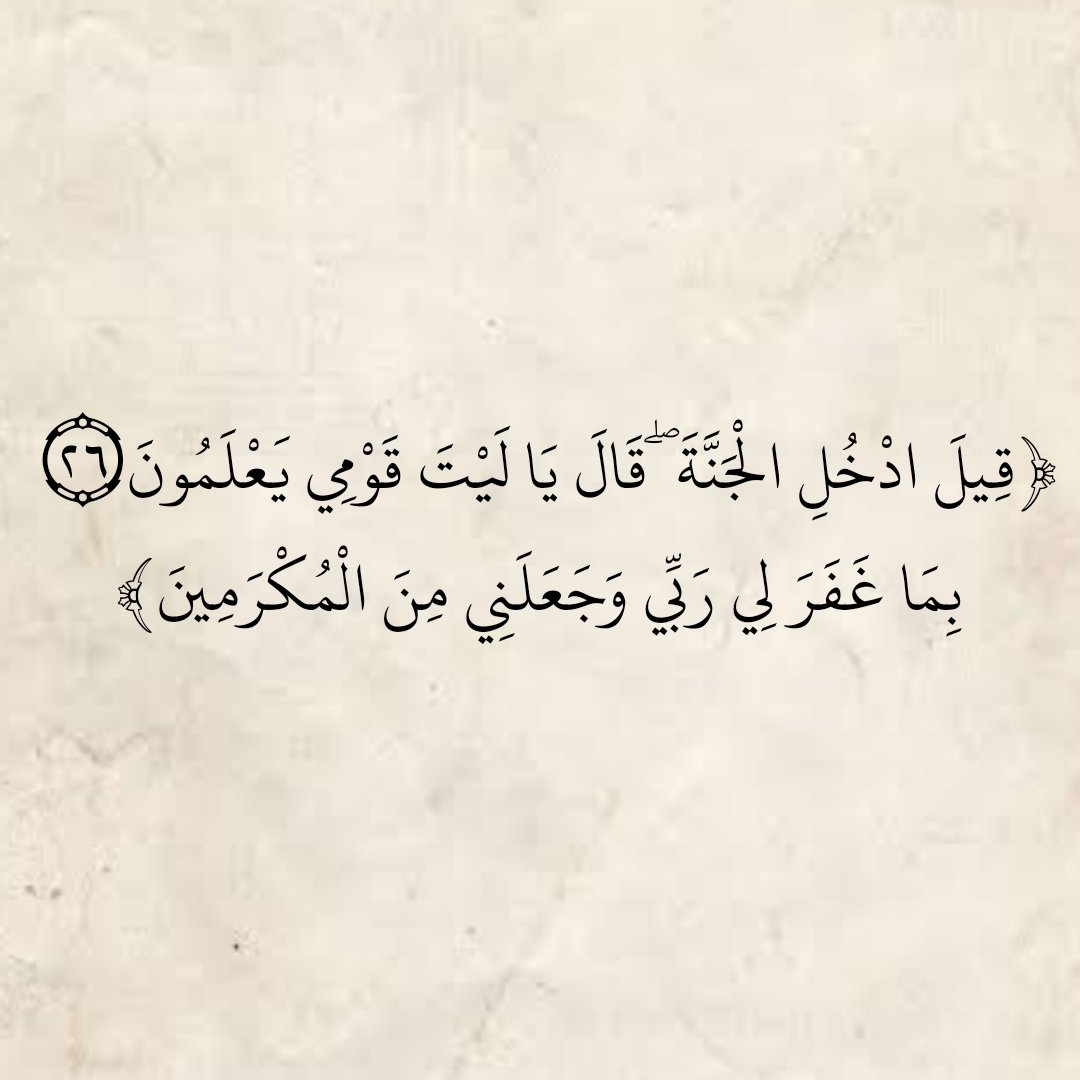 ﴿قِيلَ ادْخُلِ الْجَنَّةَ ۖ قَالَ يَا لَيْتَ قَوْمِي يَعْلَمُونَ ۝٢٦
بِمَا غَفَرَ لِي رَبِّي وَجَعَلَنِي مِنَ الْمُكْرَمِينَ﴾